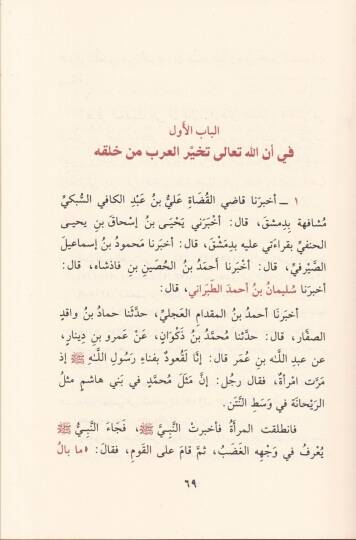 الباب الأول
في أن الله تعالى تخيَّر العرب من خلقه
١ ـ أخبرَنا قاضي القُضَاةِ عَليُّ بنُ عَبْدِ الكافي السُّبكيُّ
مُشافهة بِدِمشقَ، قال: أخْبَرَني يَحْيَى بنُ إسْحاقَ بنِ يحيى
الحنفيُّ بقراءَتي عليه بدمَشْقَ، قال: أخبرنا مَحمودُ بنُ إسماعيلَ
الصَّيْرفيُّ، قال: أخْبَرنا أحمَدُ بنُ الحُصَينِ بنِ فاذشاه، قال:
أخبرَنا سُليمانُ بنُ أحمدَ الطَّبَراني، قال:
أخبرَنَا أحمدُ بنُ المقدامِ العجليُّ، حدَّثنا حمادُ بنُ واقدٍ
الصفَّار، قال: حدَّثنا مُحمَّدُ بنُ ذَكْوَانَ، عَنْ عَمرو بنِ دِينارٍ،
عن عبدِ اللَّـه بنِ عُمَرَ قال: إنَّا لَقُعودٌ بفناءِ رَسُولِ اللَّـهِ ﷺ إذ
مَرَّت امْرأةٌ، فقال رجُل: إنَّ مَثَلَ مُحمَّدٍ في بَني هاشمٍ مثلُ
الرَيْحانَة في وَسَطِ النَّتَنِ.
فانطلقت المرأةُ فأخبرتْ النَّبِيَّ ﷺ، فَجَاءَ النَّبِيُّ ﷺ
يُعْرفُ في وَجْههِ الغَضَبُ، ثمَّ قامَ على القَومِ، فقالَ: «ما بالُ
٦٩